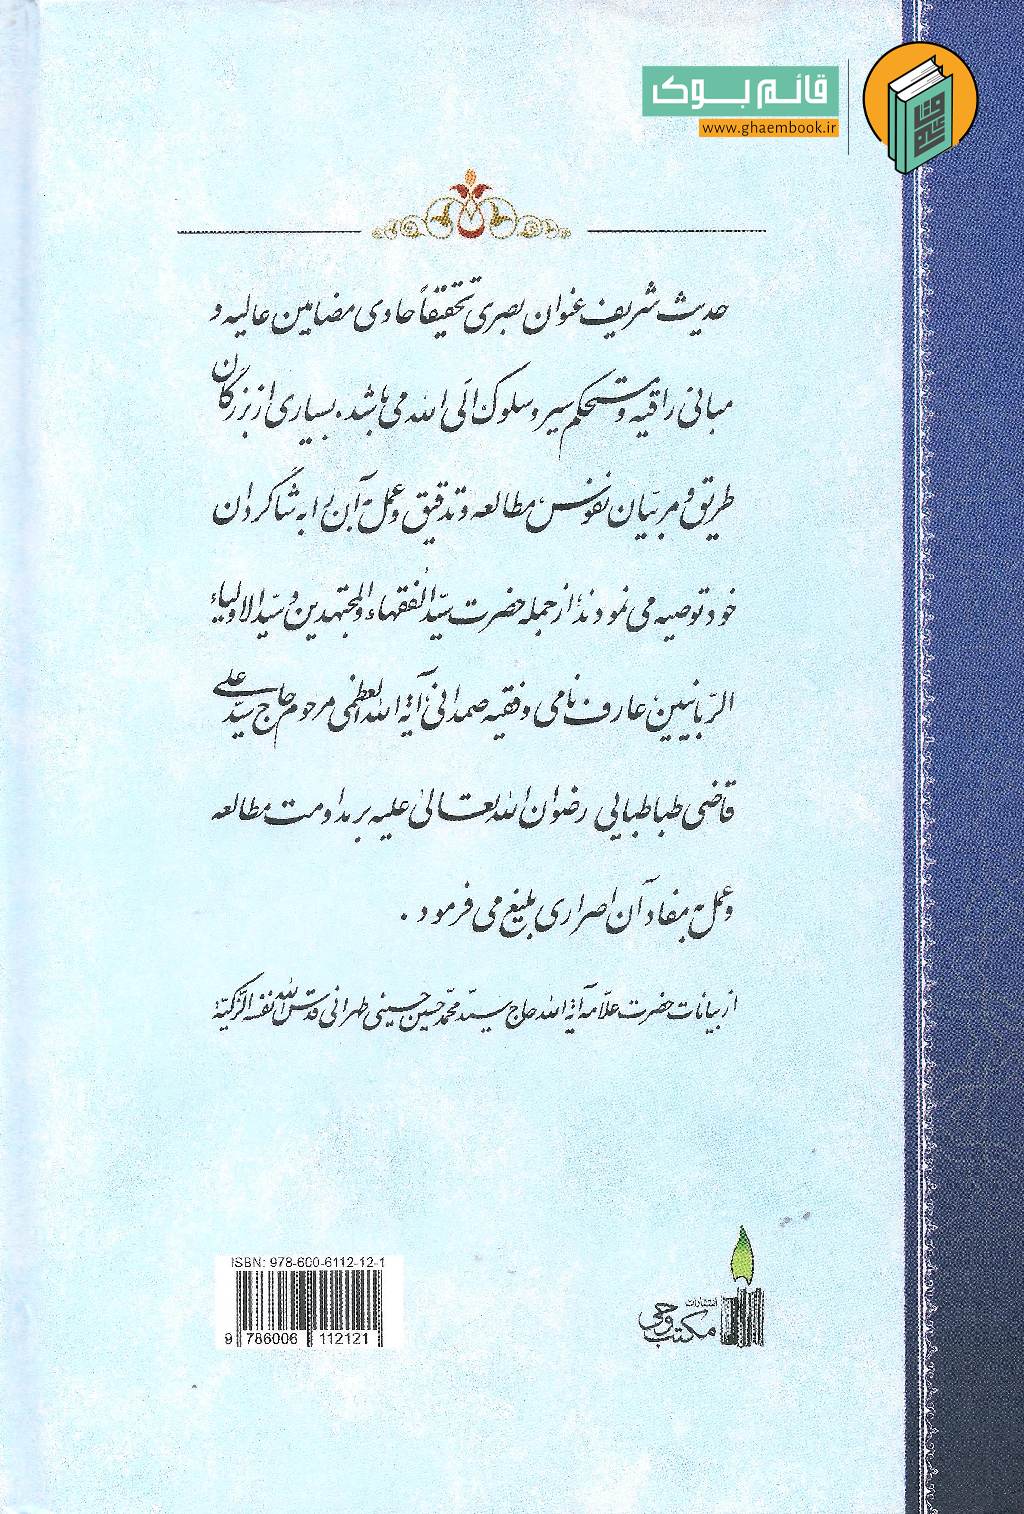 قائم بوک
www.ghaembook.ir
حدیث شریف عنوان بصری تحقیقاً حاوی مضامین عالیه و
مبانی راقیه و مستحکم سیر و سلوک الَی الله می باشد. بسیاری از بزرگان
طریق و مربّیان نفوس، مطالعه و تدقیق و عمل به آن را به شاگردان
خود توصیه می نمودند؛ از جمله حضرت سیّد الفقهاء و المجتهدین و سیّد الاولیاء
الربّانیّین، عارف نامی و فقیه صمدانی، آیة الله العظمی مرحوم حاج سیّد علی
قاضی طباطبایی رضوان الله تعالیٰ علیه بر مداومت مطالعه
و عمل به مفاد آن اصراری بلیغ می فرمود.
از بیانات حضرت علّامه آیة الله حاج سیّد محمّد حسین حسینی طهرانی قدّس الله نفسه الزّکیّة
ISBN: 978-600-6112-12-1
9 786006 112121
انتشارات
مکتب وحی